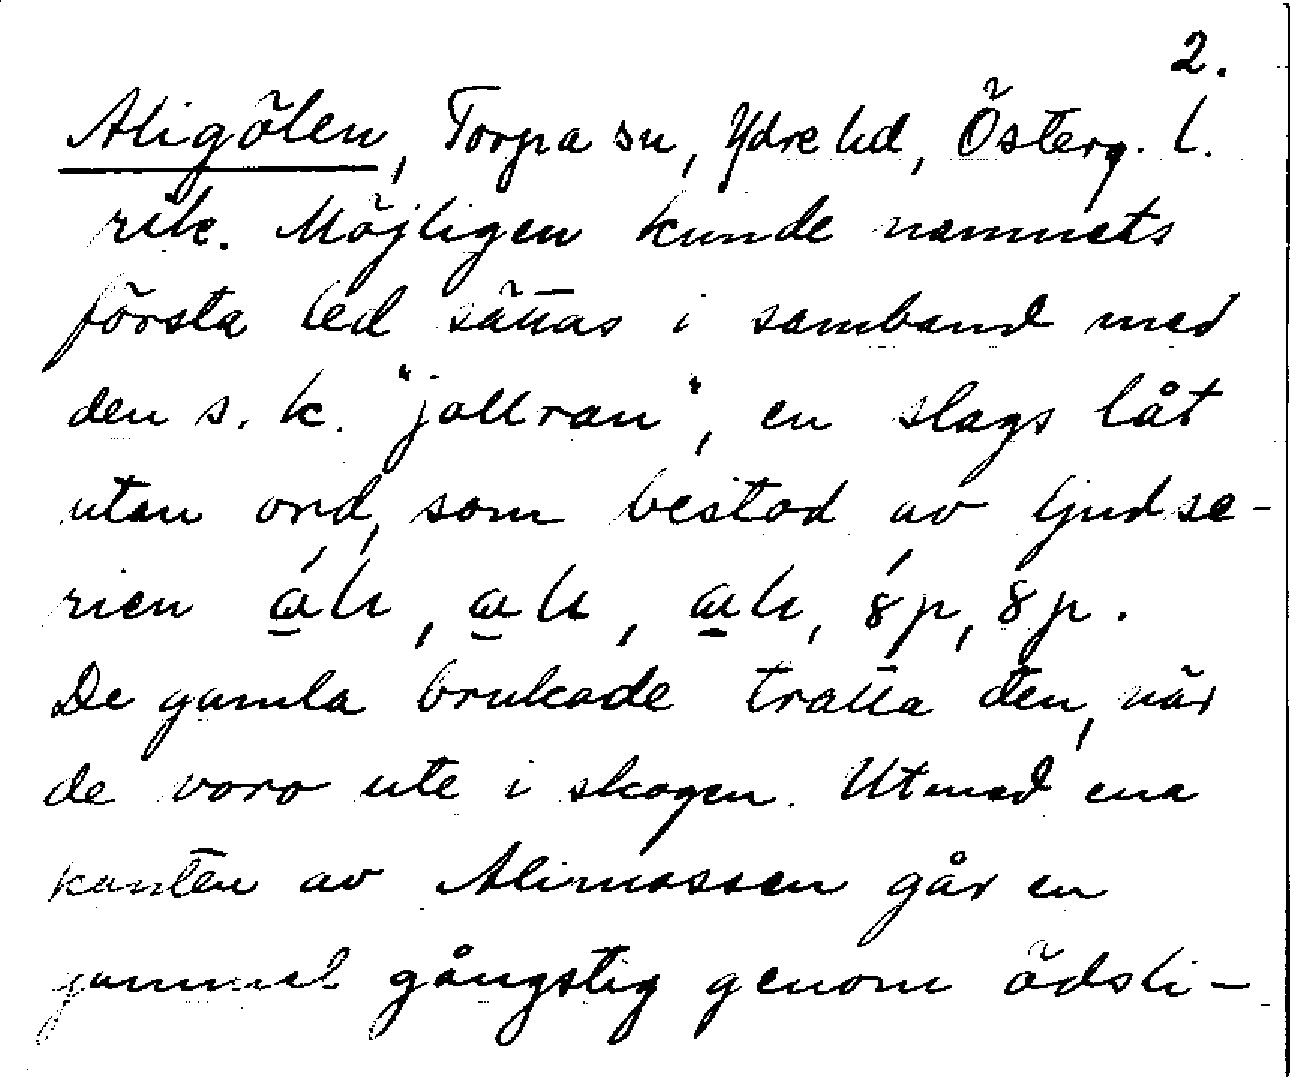 2.
Aligölen, Torpa sn, Ydre hd, Österg. l.
rik. Möjligen kunde namnets
första led sättas i samband med
den s. k. "jollran", en slags låt
utan ord, som bestod av ljudse-
rien
De gamla brukade tralla den, när
de voro ute i skogen. Utmed ena
kanten av Alimossen går en
gammal gångstig genom ödsli-